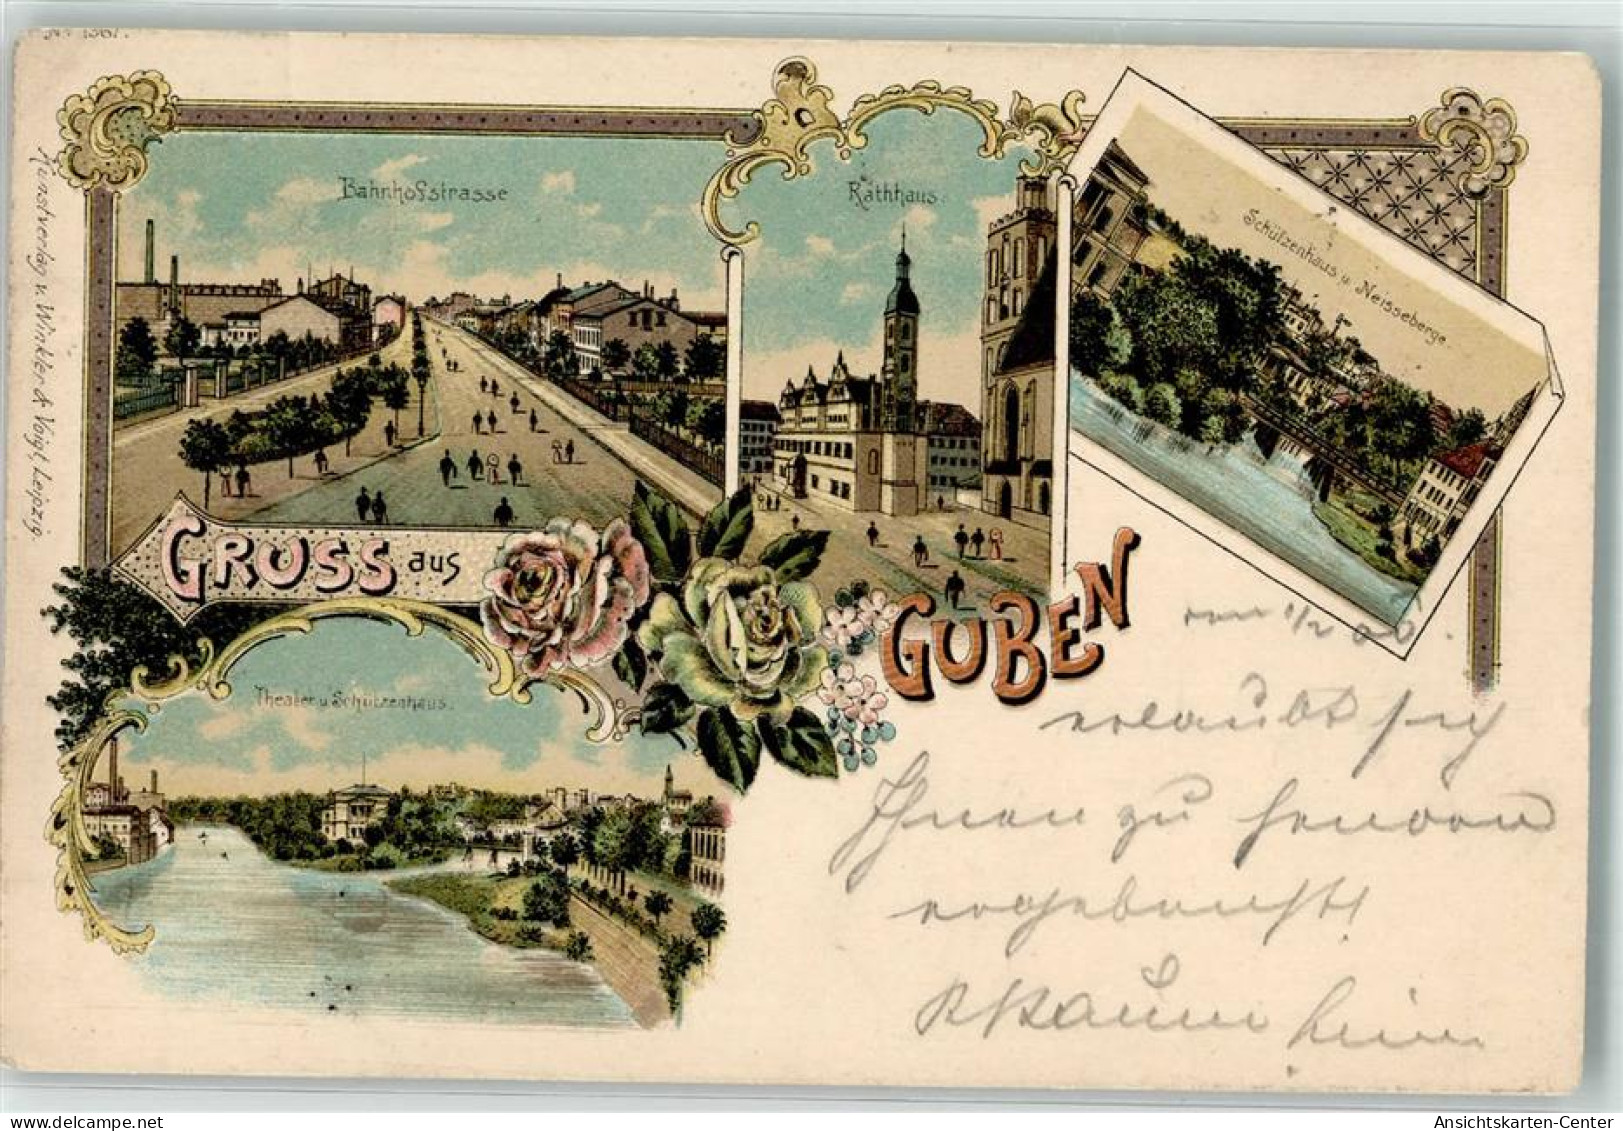 No 1367.
Kunstverlag v. Winkler & Voigt, Leipzig.
Bahnhofstrasse
Rathhaus.
Schützenhaus u. Neisseberge.
GRUSS aus
GUBEN
Theater u. Schützenhaus.
1/2 00.
erlaubt sich
Ihnen zu senden
ergebenst
Ansichtskarten-Center